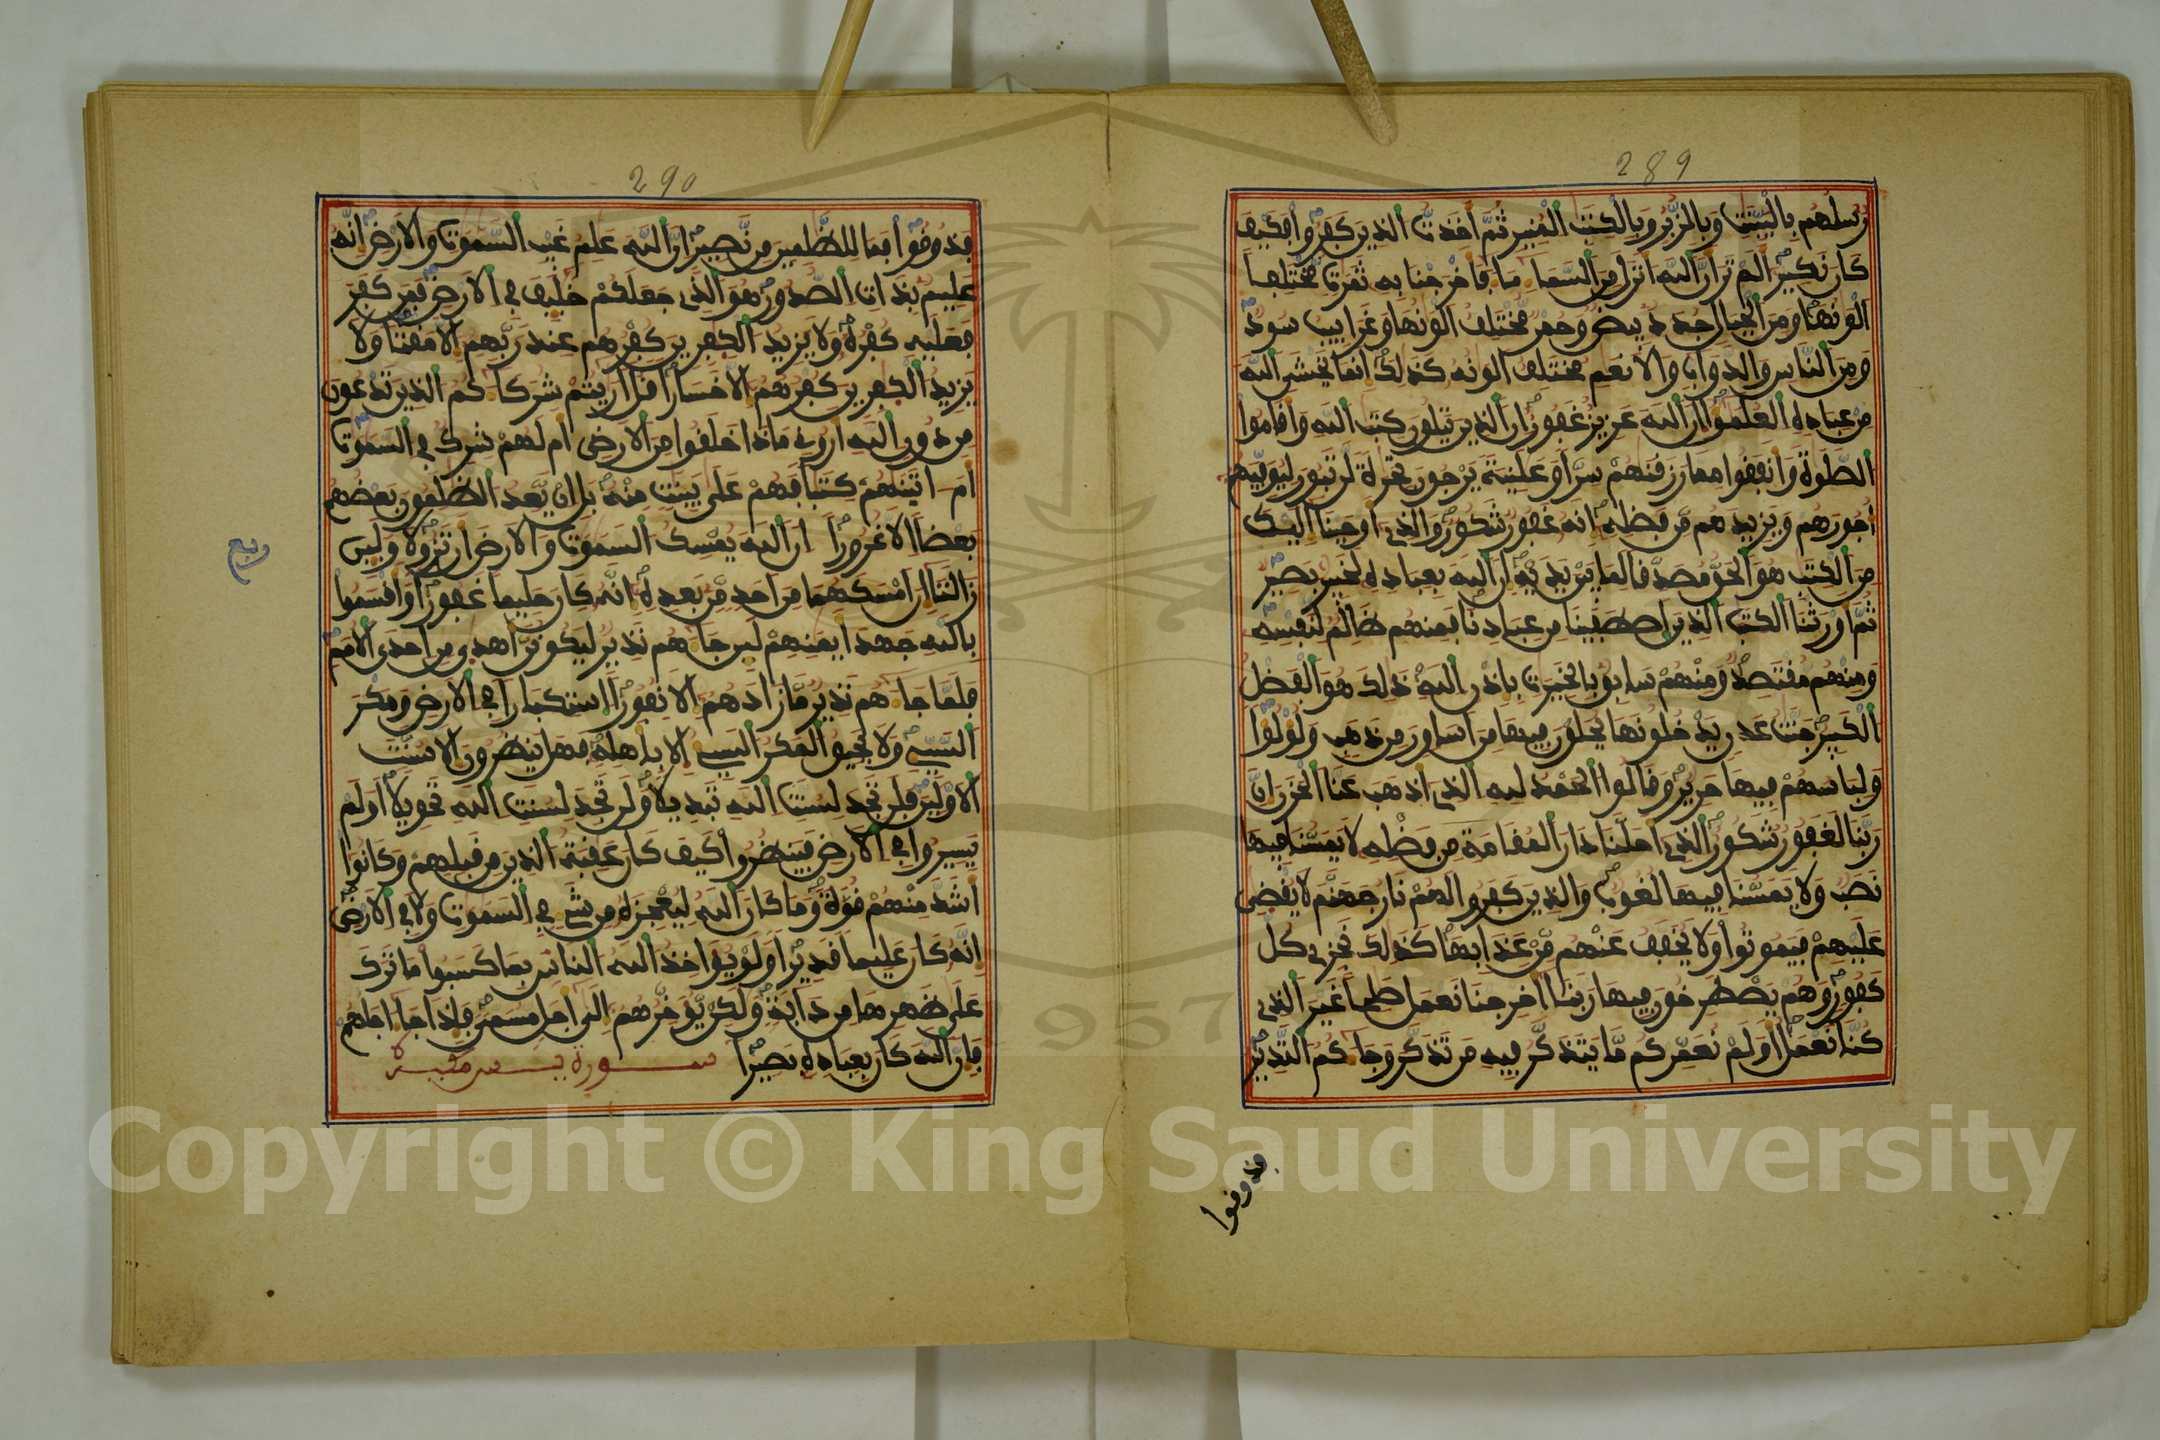 289
رسلهم بالبينت وبالزبر وبالكتب المنير ثم أخذت الذين كفروا فكيف
كان نكير الم تر ان الله انزل من السماء ماء فاخرجنا به ثمرت مختلفا
الونها ومن الجبال جدد بيض وحمر مختلف الونها وغرابيب سود
ومن الناس والدواب والانعم مختلف الونه كذلك انما يخشى الله
من عباده العلمؤا ان الله عزيز غفور ان الذين يتلون كتب الله واقاموا
الصلوة وانفقوا مما رزقنهم سرا وعلنية يرجون تجرة لن تبور ليوفيهم
اجورهم ويزيدهم من فضله انه غفور شكور والذي اوحينا اليك
من الكتب هو الحق مصدقا لما بين يديه ان الله بعباده لخبير بصير
ثم اورثنا الكتب الذين اصطفينا من عبادنا فمنهم ظالم لنفسه
ومنهم مقتصد ومنهم سابق بالخيرت باذن الله ذلك هو الفضل
الكبير جنت عدن يدخلونها يحلون فيها من اساور من ذهب ولؤلؤا
ولباسهم فيها حرير وقالوا الحمد لله الذي اذهب عنا الحزن ان
ربنا لغفور شكور الذي احلنا دار المقامة من فضله لا يمسنا فيها
نصب ولا يمسنا فيها لغوب والذين كفروا لهم نار جهنم لا يقضى
عليهم فيموتوا ولا يخفف عنهم من عذابها كذلك نجزي كل
كفور وهم يصطرخون فيها ربنا اخرجنا نعمل صلحا غير الذي
كنا نعمل اولم نعمركم ما يتذكر فيه من تذكر وجاءكم النذير
فذوقوا
290
فذوقوا فما للظلمين من نصير ان الله علم غيب السموت والارض انه
عليم بذات الصدور هو الذي جعلكم خليف في الارض فمن كفر
فعليه كفره ولا يزيد الكفرين كفرهم عند ربهم الا مقتا ولا
يزيد الكفرين كفرهم الا خسارا قل اريتم شركاءكم الذين تدعون
من دون الله اروني ماذا خلقوا من الارض ام لهم شرك في السموت
ام اتينهم كتبا فهم على بينت منه بل ان يعد الظلمون بعضهم
بعضا الا غرورا ان الله يمسك السموت والارض ان تزولا ولين
زالتا ان امسكهما من احد من بعده انه كان حليما غفورا واقسموا
بالله جهد ايمنهم لين جاءهم نذير ليكونن اهدى من احدى الامم
فلما جاءهم نذير ما زادهم الا نفورا استكبارا في الارض ومكر
السيي ولا يحيق المكر السيي الا باهله فهل ينظرون الا سنت
الاولين فلن تجد لسنت الله تبديلا ولن تجد لسنت الله تحويلا اولم
يسيروا في الارض فينظروا كيف كان عقبة الذين من قبلهم وكانوا
اشد منهم قوة وما كان الله ليعجزه من شيء في السموت ولا في الارض
انه كان عليما قديرا ولو يواخذ الله الناس بما كسبوا ما ترك
على ظهرها من دابة ولكن يوخرهم الى اجل مسمى فاذا جاء اجلهم
فان الله كان بعباده بصيرا سورة يس مكية
ربع
Copyright © King Saud University
1957